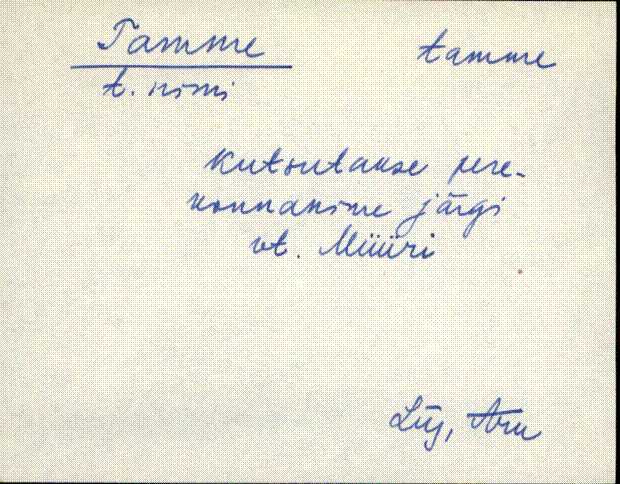 Tamme tamme
t. nimi
Kutsutakse pere-
konnanime järgi
vt. Müüri
Lüg, Aru